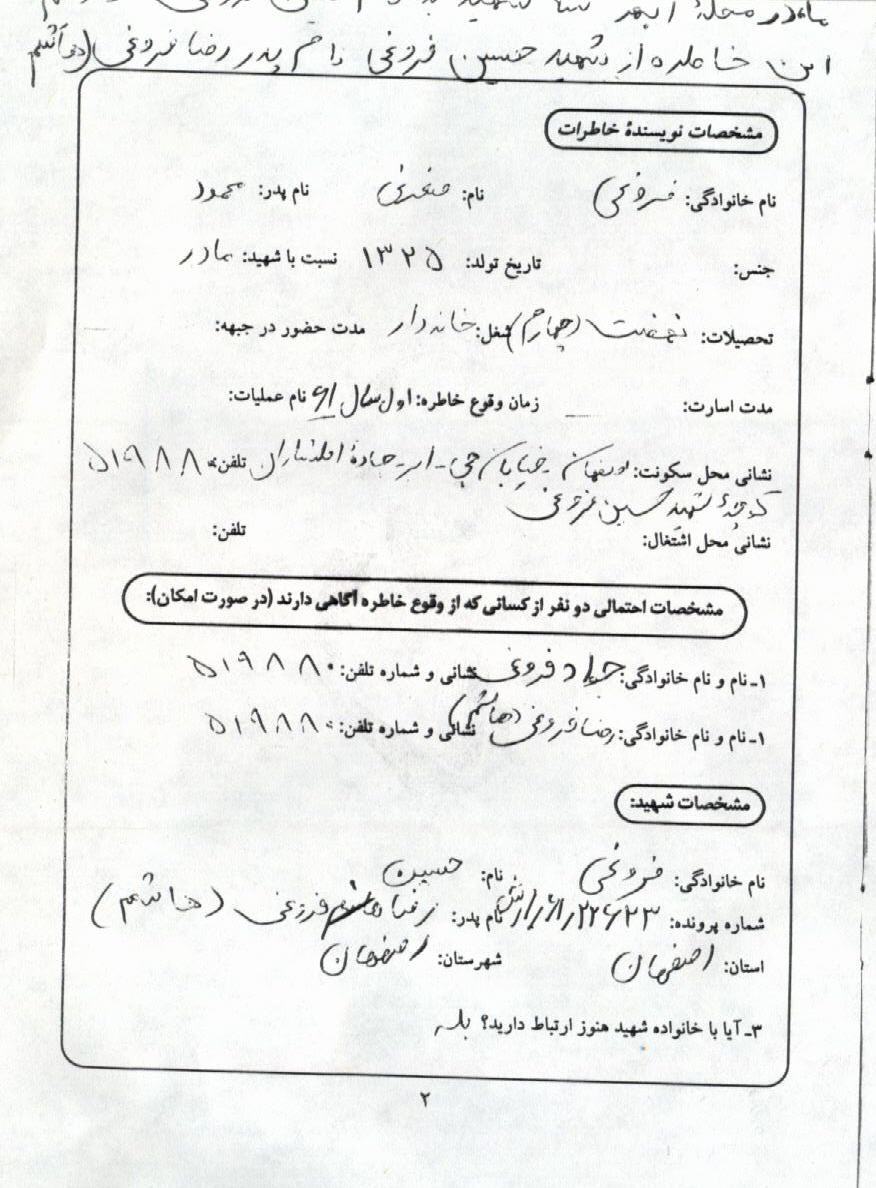 مادر محلهٔ ابهر
این خاطره از شهید حسین فروغی نام پدر رضا فروغی (هاشم
مشخصات نویسندهٔ خاطرات
نام خانوادگی: فروغی نام: صغری نام پدر: محمود
جنس: تاریخ تولد: ۱۳۲۵ نسبت با شهید: مادر
تحصیلات: نهضت (چهارم) شغل: خانه دار مدت حضور در جبهه:
مدت اسارت: زمان وقوع خاطره: اول سال ۶۱ نام عملیات:
نشانی محل سکونت: اصفهان - خیابان جی - ابر - جادهٔ تلفن: ۵۱۹۸۸۰
کوچهٔ شهید حسین فروغی
نشانی محل اشتغال: تلفن:
مشخصات احتمالی دو نفر از کسانی که از وقوع خاطره آگاهی دارند (در صورت امکان):
۱ـ نام و نام خانوادگی: جواد فروغی نشانی و شماره تلفن: ۵۱۹۸۸۰
۱ـ نام و نام خانوادگی: رضا فروغی (هاشم) نشانی و شماره تلفن: ۵۱۹۸۸۰
مشخصات شهید:
نام خانوادگی: فروغی نام: حسین
شماره پرونده: نام پدر: رضا فروغی (هاشم)
استان: اصفهان شهرستان: اصفهان
۳ـ آیا با خانواده شهید هنوز ارتباط دارید؟ بله
۲